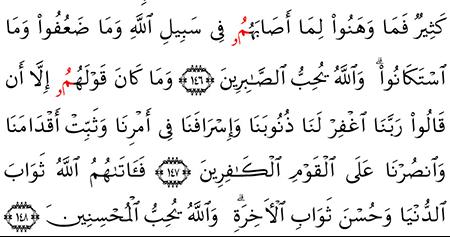 كَثِيرٌ فَمَا وَهَنُوا۟ لِمَا أَصَابَهُمُۥ فِى سَبِيلِ ٱللَّهِ وَمَا ضَعُفُوا۟ وَمَا
ٱسْتَكَانُوا۟ ۗ وَٱللَّهُ يُحِبُّ ٱلصَّـٰبِرِينَ ١٤٦ وَمَا كَانَ قَوْلَهُمُۥ إِلَّا أَن
قَالُوا۟ رَبَّنَا ٱغْفِرْ لَنَا ذُنُوبَنَا وَإِسْرَافَنَا فِى أَمْرِنَا وَثَبِّتْ أَقْدَامَنَا
وَٱنصُرْنَا عَلَى ٱلْقَوْمِ ٱلْكَـٰفِرِينَ ١٤٧ فَـَٔاتَىٰهُمُ ٱللَّهُ ثَوَابَ
ٱلدُّنْيَا وَحُسْنَ ثَوَابِ ٱلْأَخِرَةِ ۗ وَٱللَّهُ يُحِبُّ ٱلْمُحْسِنِينَ ١٤٨